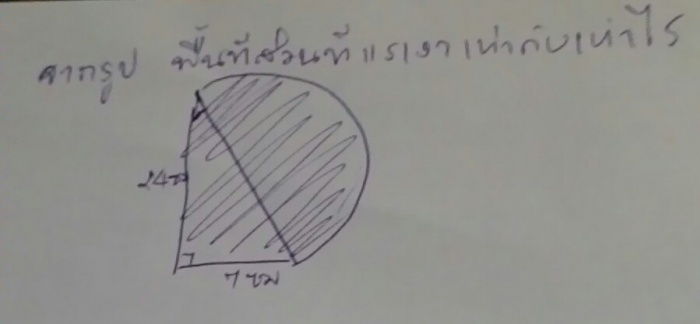 จากรูป พื้นที่ส่วนที่แรเงาเท่ากับเท่าไร
24ซม
7ซม